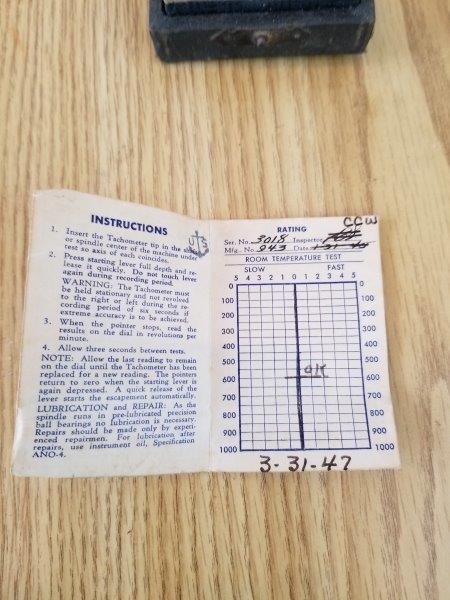 INSTRUCTIONS
1. Insert the Tachometer tip in the
or spindle center of the machine under
test so axis of each coincides.
U S
2. Press starting lever full depth and re-
lease it quickly. Do not touch lever
again during recording period.
WARNING: The Tachometer must
be held stationary and not revolved
to the right or left during the re-
cording period of six seconds if
extreme accuracy is to be achieved.
3. When the pointer stops, read the
results on the dial in revolutions per
minute.
4. Allow three seconds between tests.
NOTE: Allow the last reading to remain
on the dial until the Tachometer has been
replaced for a new reading. The pointers
return to zero when the starting lever is
again depressed. A quick release of the
lever starts the escapement automatically.
LUBRICATION and REPAIR: As the
spindle runs in pre-lubricated precision
ball bearings no lubrication is necessary.
Repairs should be made only by experi-
enced repairmen. For lubrication after
repairs, use instrument oil, Specification
ANO-4.
CCW
RATING
Ser. No. 3018 Inspector
Mfg. No. 943 Date
ROOM TEMPERATURE TEST
SLOW FAST
5 4 3 2 1 0 1 2 3 4 5
0 0
100 100
200 200
300 300
400 400
500 500
O/K
600 600
700 700
800 800
900 900
1000 1000
3-31-47